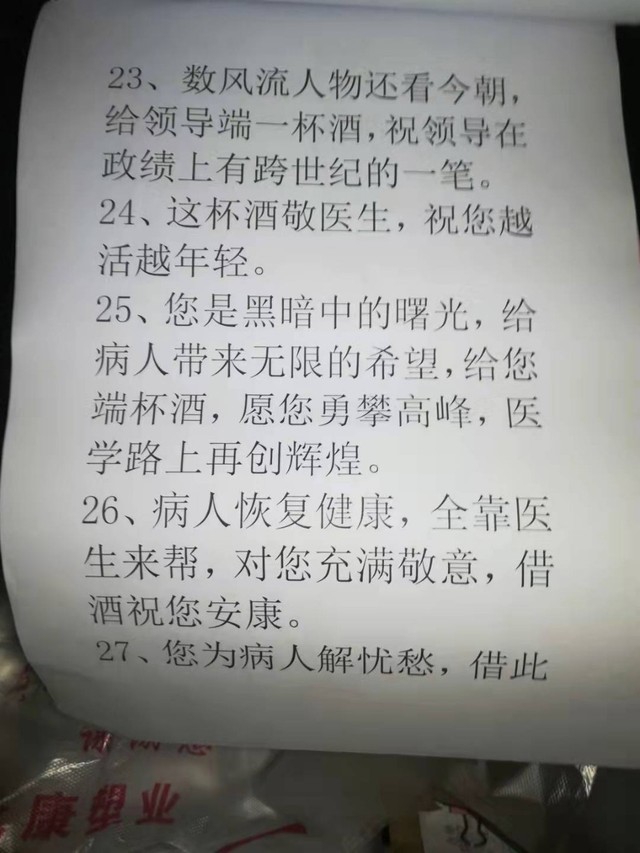 23、数风流人物还看今朝，
给领导端一杯酒，祝领导在
政绩上有跨世纪的一笔。
24、这杯酒敬医生，祝您越
活越年轻。
25、您是黑暗中的曙光，给
病人带来无限的希望，给您
端杯酒，愿您勇攀高峰，医
学路上再创辉煌。
26、病人恢复健康，全靠医
生来帮，对您充满敬意，借
酒祝您安康。
27、您为病人解忧愁，借此
康塑业